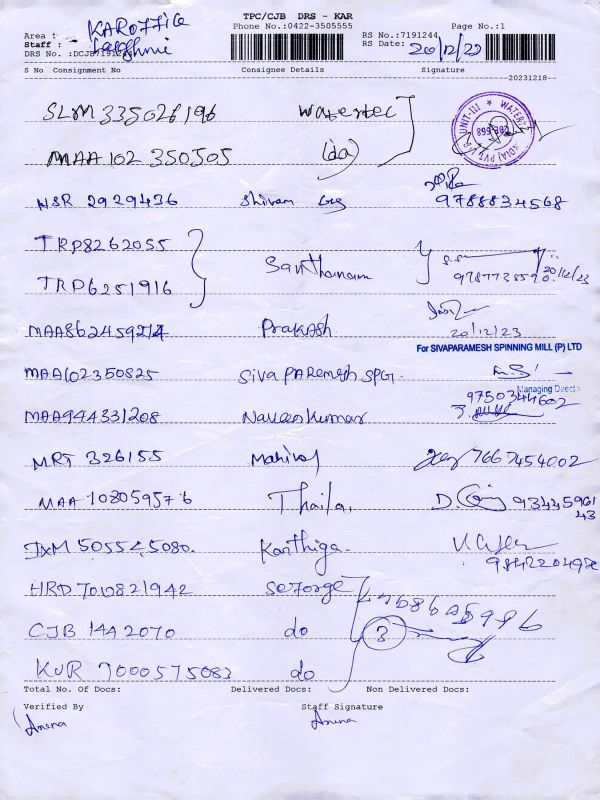 TPC/CJB DRS - KAR
Phone No.:0422-3505555 Page No.:1
Area : KAROFFICE
Staff :
DRS No. :DCJB7191244
RS No.:7191244
RS Date: 20/12/23
S No Consignment No Consignee Details Signature
20231218
SLM 335026196 Watertec
MAA 102 350505 (do)
UNIT-III WATERTEC
NSR 2929436 Shivam 9788834568
TRP8262055
TRP6251916 Santhanam 20/12/23
MAA862459214 Prakash 20/12/23
For SIVAPARAMESH SPINNING MILL (P) LTD
MAA102350825 Siva PARemesh SPG.
Managing Direct
MAA944331208 Naveenkumar 9750344602
MRT 326155 Mahiraj 7667454002
MAA 108059576 Thaila, 93445961
43
JXM 505545080 Karthiga
9842204980
HRD 7010821942
CJB 1442070 do 3
KUR 7000575083 do
Total No. Of Docs: Delivered Docs: Non Delivered Docs:
Verified By Staff Signature